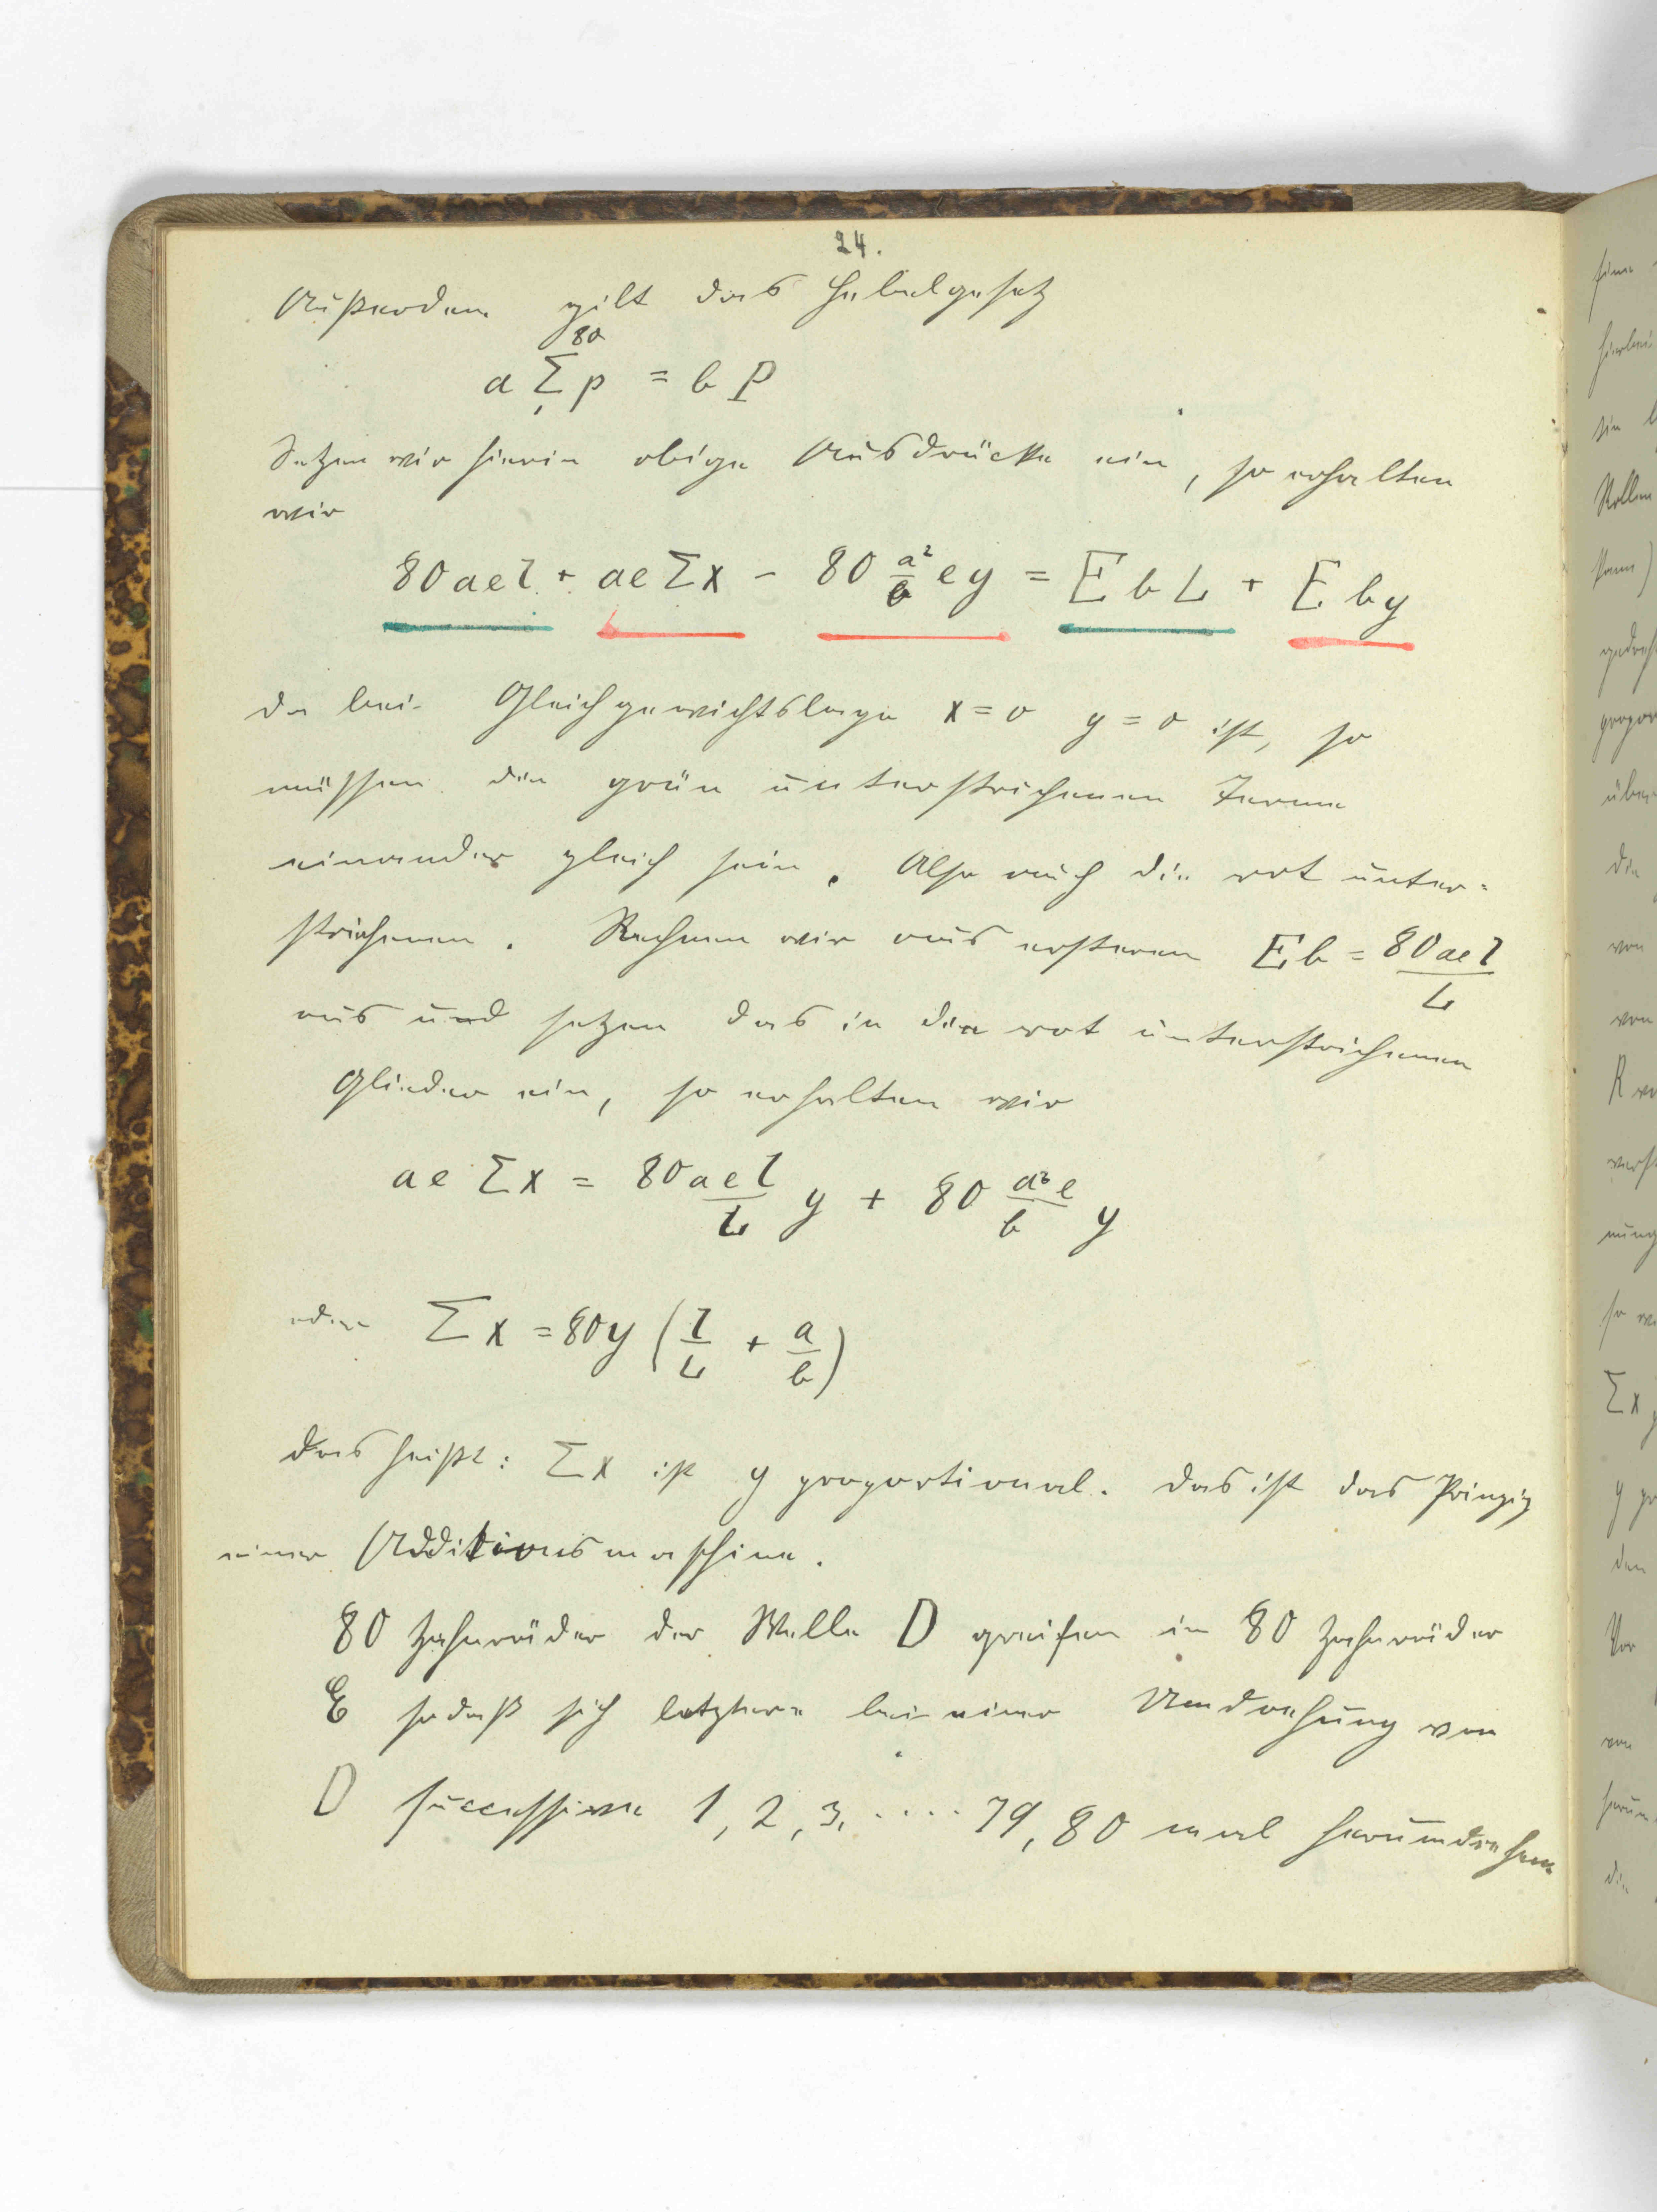 24.
Außerdem gilt das Hebelgesetz
a Σ₁⁸⁰ p = b P
Setzen wir hierin obige Ausdrücke ein, so erhalten
wir
80 a e l + a e Σ x - 80 a²/b e y = E b L + E b y
da bei Gleichgewichtslage x = 0 y = 0 ist, so
müssen die grün unterstrichenen Terme
einander gleich sein. Also auch die rot unter=
strichenen. Rechnen wir aus ersteren E b = 80 a e l / L
aus und setzen das in die rot unterstrichenen
Glieder ein, so erhalten wir
a e Σ x = 80 a e l / L y + 80 a² e / b y
oder Σ x = 80 y (l/L + a/b)
das heißt: Σ x ist y proportional. Das ist das Prinzip
einer Additionsmaschine.
80 Zahnräder der Welle D greifen in 80 Zahnräder
E sodaß sich letztere bei einer Umdrehung von
D successive 1, 2, 3, .... 79, 80 mal herumdrehen